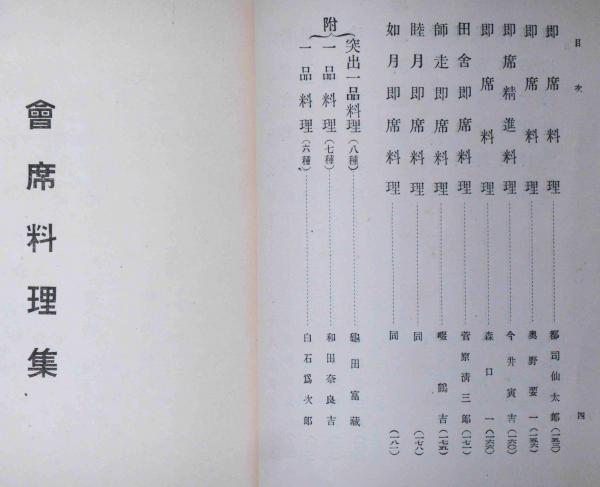 目次
四
即席料理……都司仙太郎(一五三)
即席料理……奥野要一(一五六)
即席精進料理……今井寅吉(一六〇)
即席料理……森口一(一六六)
田舍即席料理……菅原淸三郎(一七一)
師走即席料理……鶴吉(一七五)
睦月即席料理……同(一七八)
如月即席料理……同(一八一)
附
突出一品料理(八種)……龜田富藏
一品料理(七種)……和田奈良吉
一品料理(六種)……白石爲次郎
會席料理集